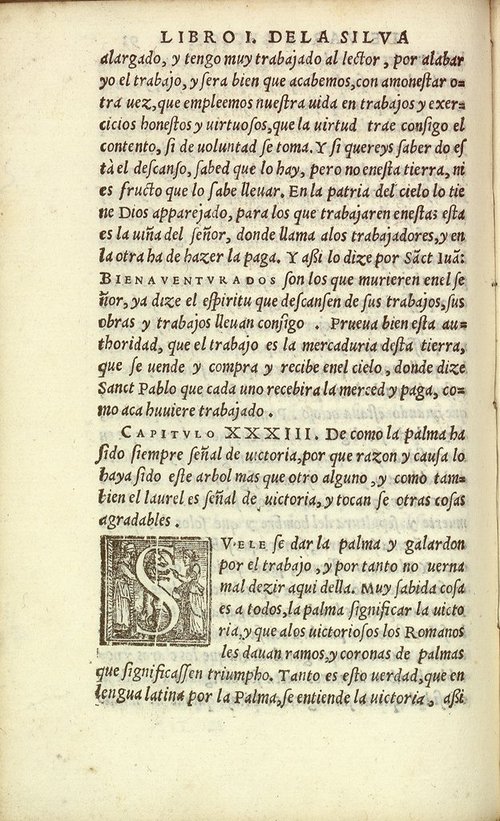 LIBRO I. DE LA SILVA
alargado, y tengo muy trabajado al lector, por alabar
yo el trabajo, y sera bien que acabemos, con amonestar o-
tra vez, que empleemos nuestra uida en trabajos y exer-
cicios honestos y uirtuosos, que la uirtud trae consigo el
contento, si de uoluntad se toma. Y si quereys saber do es
tà el descanso, sabed que lo hay, pero no enesta tierra, ni
es fructo que lo sabe lleuar. En la patria del cielo lo tie
ne Dios apparejado, para los que trabajaren enestas esta
es la uiña del señor, donde llama alos trabajadores, y en
la otra ha de hazer la paga. Y aßi lo dize por Sāct Iuā:
BIENAVENTVRADOS son los que murieren enel se
ñor, ya dize el espiritu que descansen de sus trabajos, sus
obras y trabajos lleuan consigo. Prueua bien esta au-
thoridad, que el trabajo es la mercaduria desta tierra,
que se uende y compra y recibe enel cielo, donde dize
Sanct Pablo que cada uno recebira la merced y paga, co-
mo aca huuiere trabajado.
CAPITVLO XXXIII. De como la palma ha
sido siempre señal de uictoria, por que razon y causa lo
haya sido este arbol mas que otro alguno, y como tam-
bien el laurel es señal de uictoria, y tocan se otras cosas
agradables.
SVELE se dar la palma y galardon
por el trabajo, y por tanto no uerna
mal dezir aqui della. Muy sabida cosa
es a todos, la palma significar la uicto
ria, y que alos uictoriosos los Romanos
les dauan ramos, y coronas de palmas
que significassen triumpho. Tanto es esto uerdad, que en
lengua latina por la Palma, se entiende la uictoria, aßi